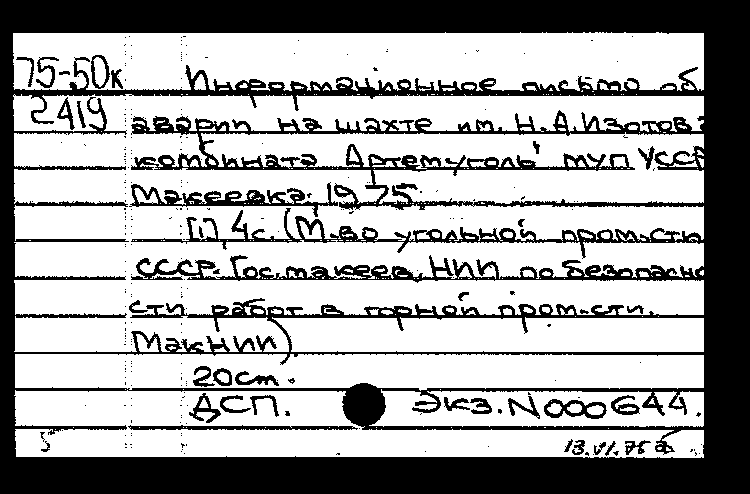 75-50к Информационное письмо об
2419 аварии на шахте им. Н.А.Изотова
комбината "Артемуголь" МУП УССР
Макеевка, 1975.
[1], 4с. (М-во угольной пром-сти
СССР. Гос. макеев. НИИ по безопасно
сти работ в горной пром-сти.
МакНИИ).
20 см.
ДСП. Экз. N 000644.
5 13.VI.75